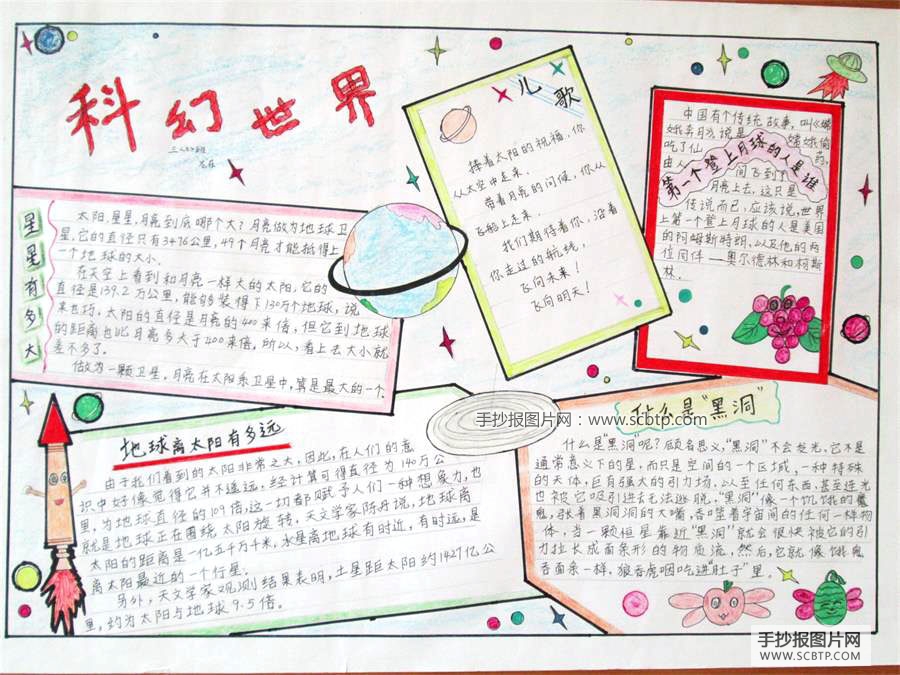 科幻世界
儿歌
捧着太阳的祝福，你
从太空中走来．
带着月亮的问候，你从
飞船上走来．
我们期待着你，沿着
你走过的航线，
飞向未来！
飞向明天！
中国有个传统故事，叫《嫦
娥奔月》说是
嫦娥偷
吃了仙
药，
由人
间飞到了
月亮上去，这只是
第一个登上月球的人是谁
传说而已，应该说，世界
上第一个登上月球的人是美国
的阿姆斯特朗，以及他的两
位同伴——奥尔德林和柯斯
林．
星星有多大
太阳，星星，月亮到底哪个大？月亮做为地球卫
星，它的直径只有3476公里，49个月亮才能抵得上
一个地球的大小．
在天空上看到和月亮一样大的太阳，它的
直径是139.2万公里，能够装得下130万个地球，说
来也巧，太阳的直径是月亮的400来倍，但它到地球
的距离也比月亮多大于400来倍，所以，看上去大小就
差不多了．
做为一颗卫星，月亮在太阳系卫星中，算是最大的一个．
地球离太阳有多远
由于我们看到的太阳非常之大，因此，在人们的意
识中好像觉得它并不遥远，经计算可得直径为140万公
里，为地球直径的109倍，这一切都赋予人们一种想象力，也
就是地球正在围绕太阳旋转，天文学家陈丹说，地球离
太阳的距离是一亿五千万千米，水星离地球有时近，有时远，是
离太阳最近的一个行星．
另外，天文学家观测结果表明，土星距太阳约1427亿公
里，约为太阳与地球9.5倍．
手抄报图片网：www.scbtp.com
什么是“黑洞”
什么是“黑洞”呢？顾名思义，“黑洞”不会发光，它不是
通常意义下的星，而只是空间的一个区域，一种特殊
的天体，巨有强大的引力场，以至任何东西，甚至连光
也被它吸引进去无法逃脱，“黑洞”像一个饥饿的魔
鬼，张着黑洞洞的大嘴，吞噬着宇宙间的任何一样物
体，当一颗恒星靠近“黑洞”就会很快被它的引
力拉长成面条形的物质流，然后，它就像饿鬼
吞面条一样，狼吞虎咽吃进“肚子”里．
手抄报图片网
WWW.SCBTP.COM